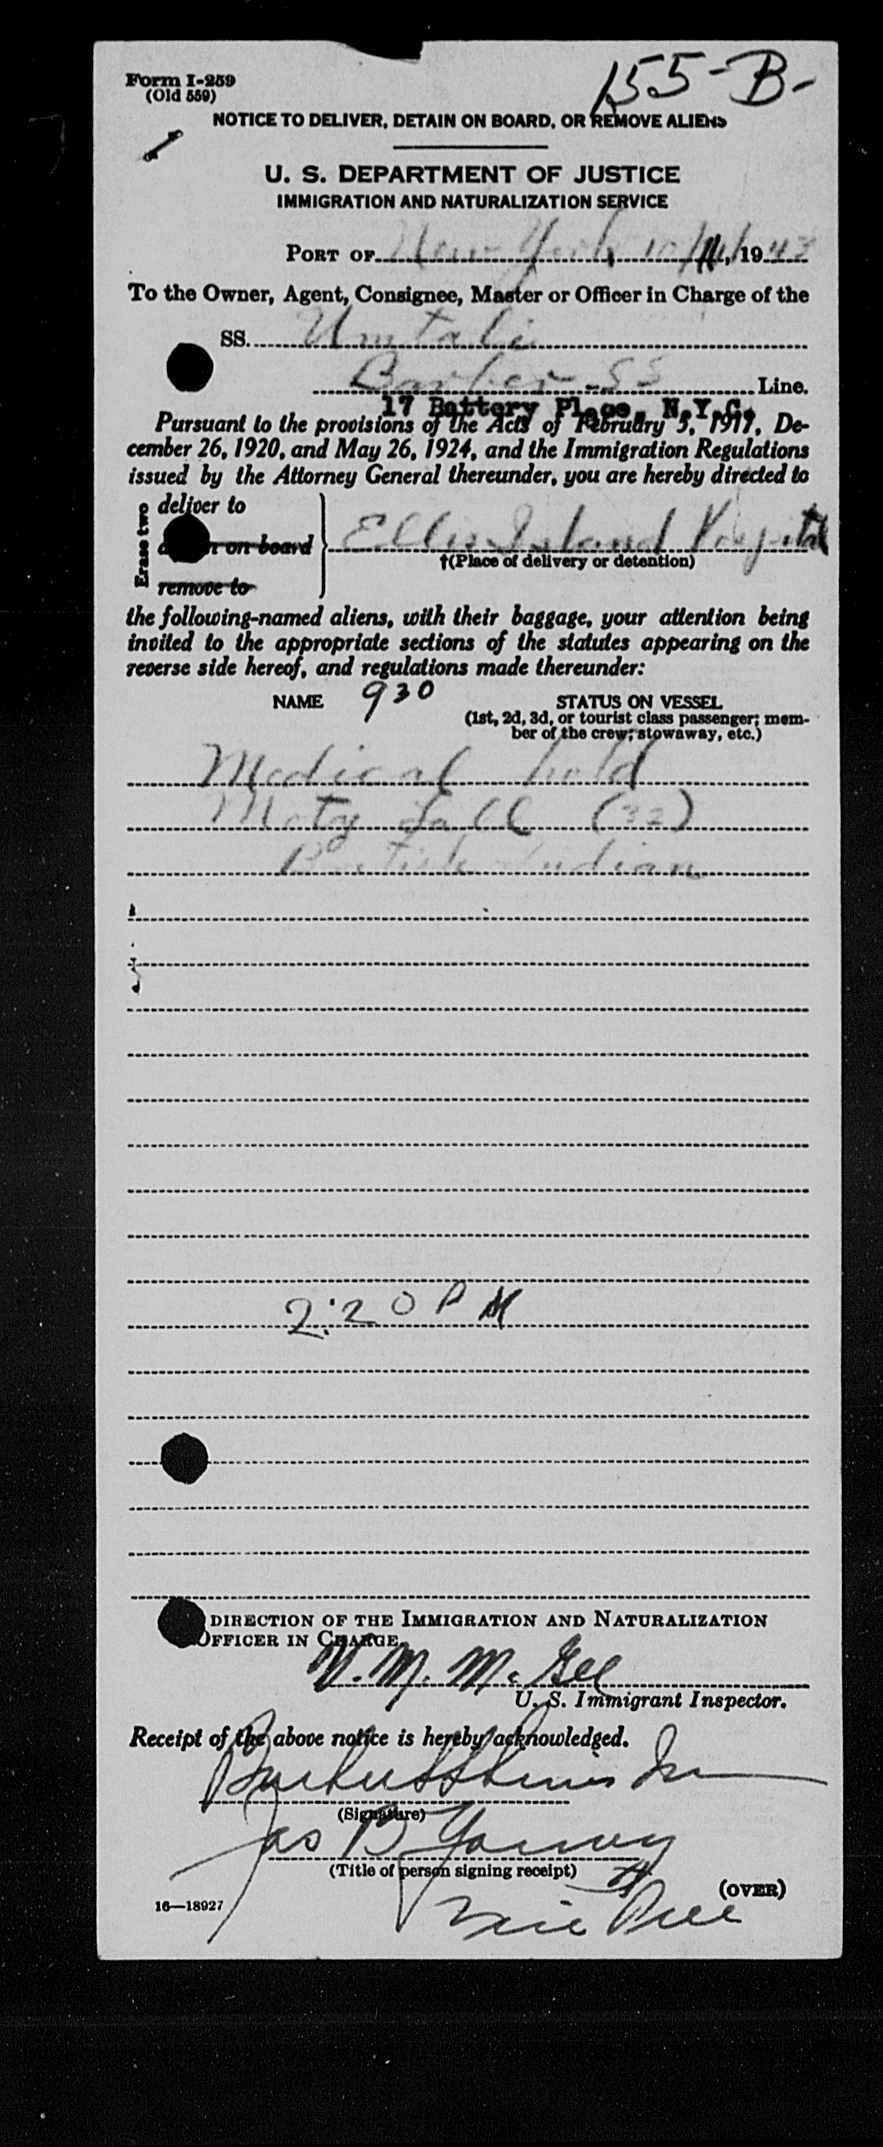 Form I-259
(Old 559)
155-B-
NOTICE TO DELIVER, DETAIN ON BOARD, OR REMOVE ALIENS
U. S. DEPARTMENT OF JUSTICE
IMMIGRATION AND NATURALIZATION SERVICE
PORT OF New York 10/11/, 1943
To the Owner, Agent, Consignee, Master or Officer in Charge of the
SS. Umtali
Barber SS Line.
17 Battery Place, N.Y.C.
Pursuant to the provisions of the Acts of February 5, 1917, De-
cember 26, 1920, and May 26, 1924, and the Immigration Regulations
issued by the Attorney General thereunder, you are hereby directed to
Erase two
deliver to
on board
remove to
Ellis Island Hospital
†(Place of delivery or detention)
the following-named aliens, with their baggage, your attention being
invited to the appropriate sections of the statutes appearing on the
reverse side hereof, and regulations made thereunder:
NAME 930 STATUS ON VESSEL
(1st, 2d, 3d, or tourist class passenger; mem-
ber of the crew; stowaway, etc.)
Medical hold
Moty Lall (32)
British Indian
2:20 PM
DIRECTION OF THE IMMIGRATION AND NATURALIZATION
OFFICER IN CHARGE.
V. M. McGee
U. S. Immigrant Inspector.
Receipt of the above notice is hereby acknowledged.
Barber SS Lines Inc
(Signature)
Jas B Young
(Title of person signing receipt)
(OVER)
16—18927